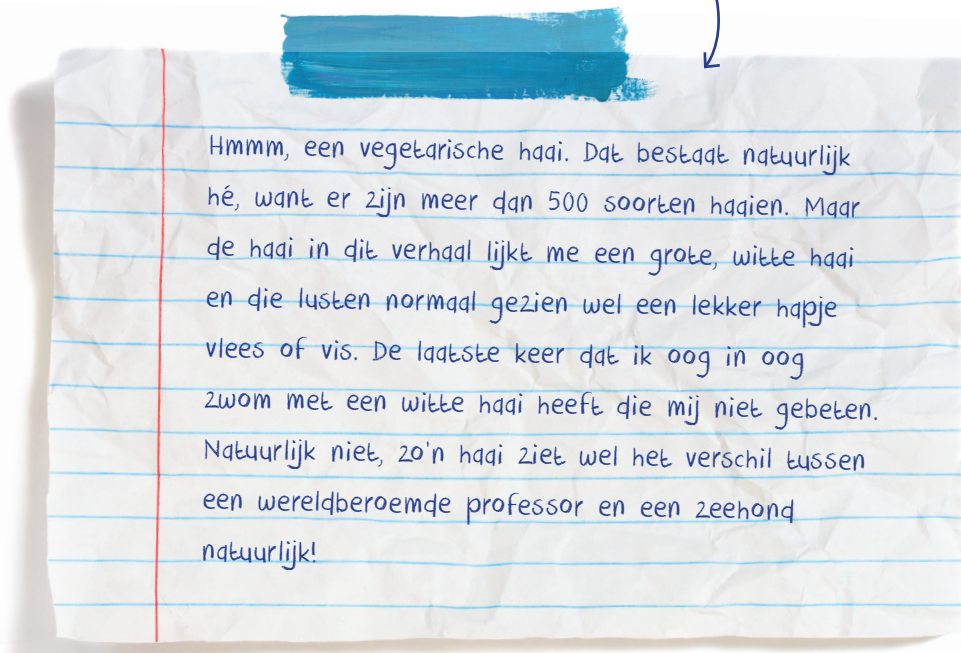 Hmmm, een vegetarische haai. Dat bestaat natuurlijk
hé, want er zijn meer dan 500 soorten haaien. Maar
de haai in dit verhaal lijkt me een grote, witte haai
en die lusten normaal gezien wel een lekker hapje
vlees of vis. De laatste keer dat ik oog in oog
zwom met een witte haai heeft die mij niet gebeten.
Natuurlijk niet, zo'n haai ziet wel het verschil tussen
een wereldberoemde professor en een zeehond
natuurlijk!